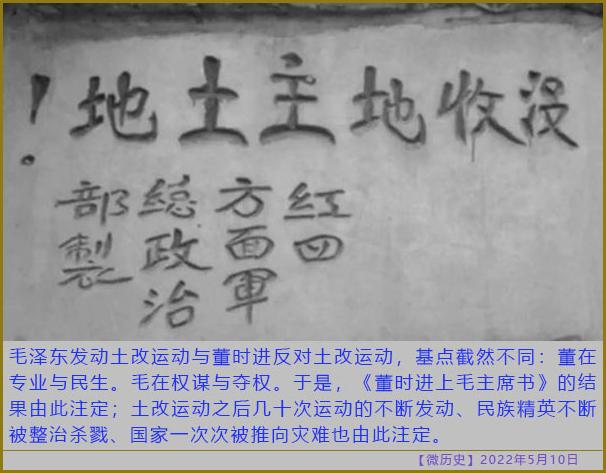 没收地主土地！
红四
方面軍
縂政治
部製
毛泽东发动土改运动与董时进反对土改运动，基点截然不同：董在
专业与民生。毛在权谋与夺权。于是，《董时进上毛主席书》的结
果由此注定；土改运动之后几十次运动的不断发动、民族精英不断
被整治杀戮、国家一次次被推向灾难也由此注定。
【微历史】2022年5月10日